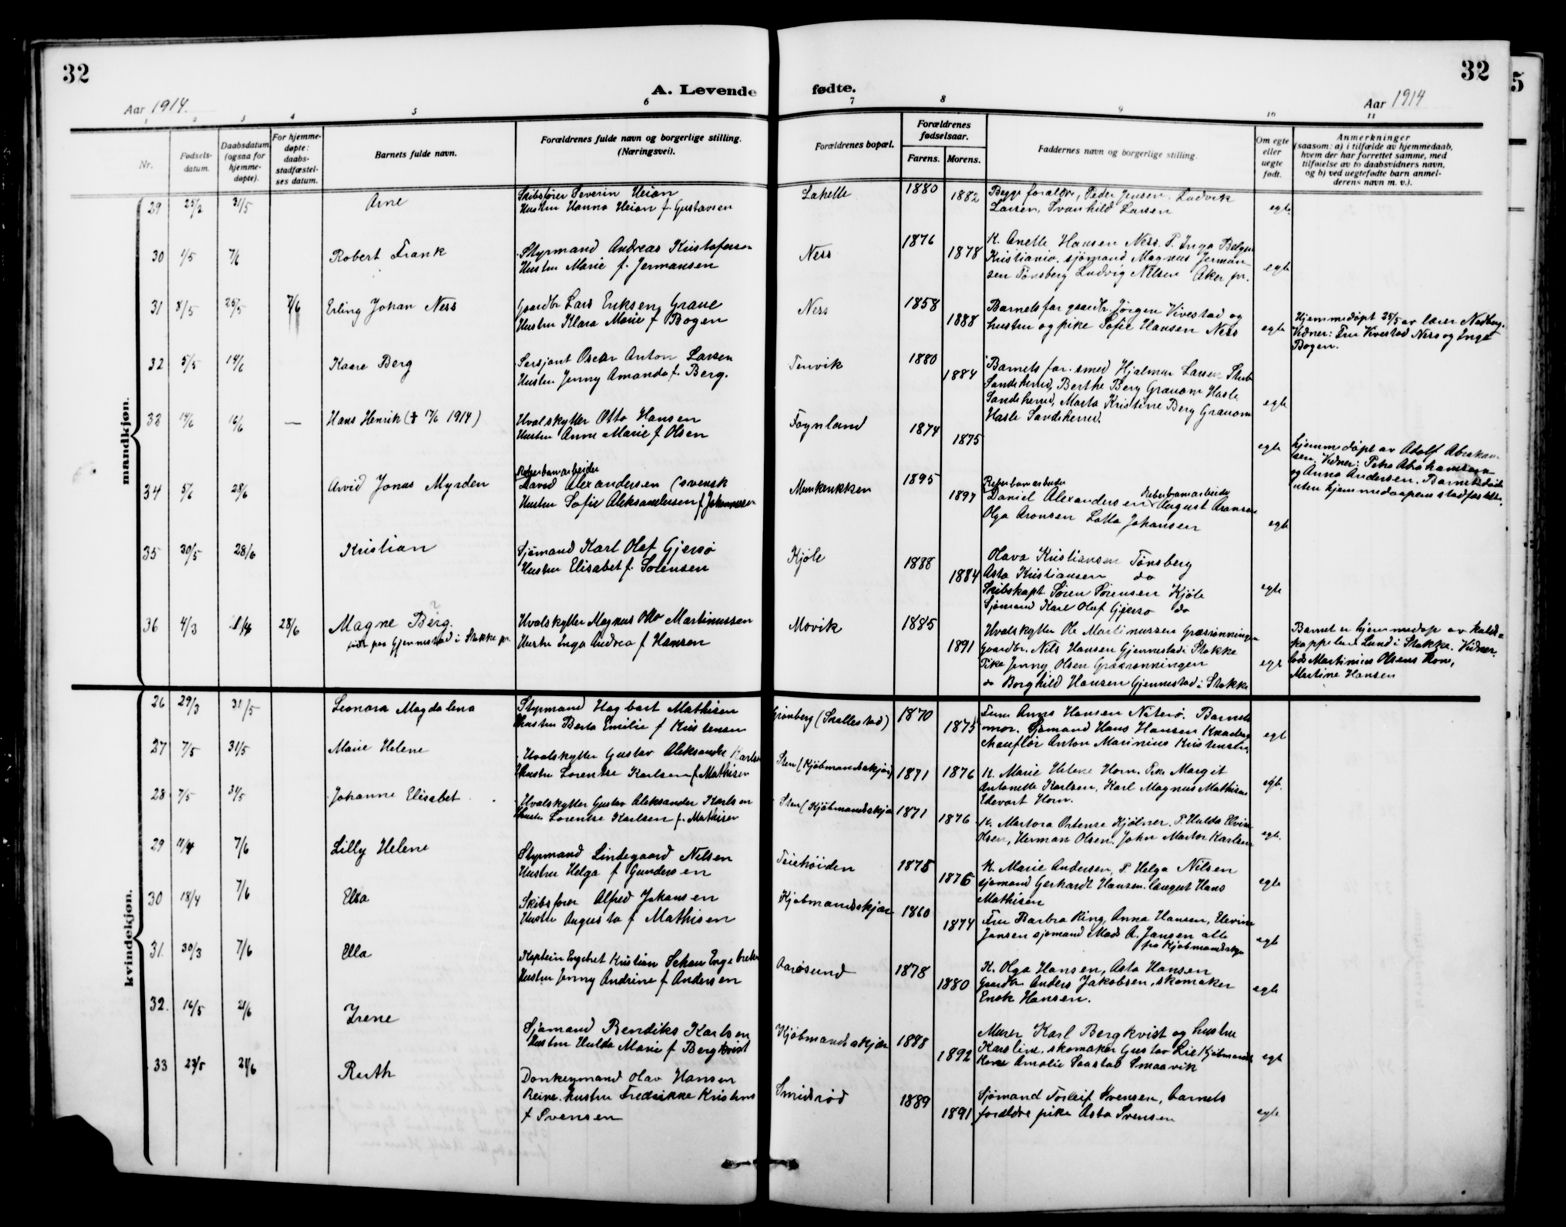 32
32
A. Levende fødte.
Aar 1914.
Aar 1914
1 2 3 4 5 6 7 8 9 10 11
Nr.
Fødsels-
datum.
Daabsdatum
(ogsaa for
hjemme-
døpte).
For hjemme-
døpte:
daabs-
stadfæstel-
ses datum.
Barnets fulde navn.
Forældrenes fulde navn og borgerlige stilling.
(Næringsvei).
Forældrenes bopæl.
Forældrenes
fødselsaar.
Farens. Morens.
Faddernes navn og borgerlige stilling.
Om egte
eller
uegte
født.
Anmerkninger
(saasom: a) i tilfælde av hjemmedaab,
hvem der har forrettet samme, med
tilføielse av to daabsvidners navn,
og b) ved uegtefødte barn anmel-
derens navn m. v.).
mandkjøn.
29 25/2 31/5 Arne
Skibsfører Severin Heian
Hustru Hanna Heian f. Gustavsen
Lahelle 1880 1882
Begge foræLdre, Peder Jensen, Ludvik
Larsen, Svanhild Larsen
egte
30 1/5 7/6 Robert Frank
Styrmand Andreas Kristofersen
Hustru Marie f. Jermansen
Ness 1876 1878
K. Anette Hansen Ness. P. Inga
Kristiania. sjømand Magnus Jerman-
sen Tønsberg Ludvig Nilsen Aker pr.
egte
31 8/5 25/5 7/6 Erling Johan Ness
Gaardbr Lars Eriksen Graue
Hustru Klara Marie f Bogen
Ness 1858 1888
Barnets far gaardbr Jørgen Vivestad og
hustru og pike Sofie Hansen Ness
egte
Hjemmedøpt 25/5 av lærer
Vidner: Fru Vivestad Ness og Inga
Bogen.
32 5/5 14/6 Kaare Berg
Sersjant Oscar Anton Larsen
Hustru Jenny Amanda f. Berg.
Tenvik 1880 1884
Barnets far. smed Hjalmar Larsen
Sandeherred, Berthe Berg Grauom Hasle
Sandeherred, Marta Kristine Berg Grauom
Hasle Sandeherred.
egte
33 14/6 16/6 — Hans Henrik († 17/6 1914)
Hvalskytter Otto Hansen
Hustru Anne Marie f. Olsen
Føynland 1874 1875
egte
hjemmedøpt av Adolf Abraham-
sen, Vidner: Petra Abrahamsen
og Anna Andersen. Barnet døde
uten hjemmedaapens stadfæstelse.
34 5/6 28/6 Arvid Jonas Myrden
Reberbanarbeider
David Alexandersen (svensk
Hustru Sofie Aleksandersen f Johannessen
Munkerekken 1895 1897
Reberbanarbeider
Daniel Alexandersen Reberbanarbeider August Aronsen
Olga Aronsen Lotta Johansen
egte
35 30/5 28/6 Kristian
Sjømand Karl Olaf Gjersø
Hustru Elisabet f. Sørensen
Kjøle 1888 1884
Olava Kristiansen Tønsberg
Asta Kristiansen do
Skibskapt Søren Sørensen Kjøle
Sjømand Karl Olaf Gjersø do
egte
36 4/3 28/6 Magne Berg.
født paa Gjennestad i Stokke pr.
Hvalskytter Magnus Otto Martinussen
Hustru Inga Andrea f Hansen
Movik 1885 1891
Hvalskytter Ole Martinussen Græsrønningen
Gaardbr. Nils Hansen Gjennestad i Stokke
Pike Jenny Olsen Græsrønningen
do Borghild Hansen Gjennestad i Stokke
egte
Barnet er hjemmedøpt av
kappellan Lund i Stokke. Vidner:
Martinius Olsens Kone,
Martine Hansen
kvindekjøn.
26 29/3 31/5 Leonora Magdalena
Styrmand Hagbart Mathisen
Hustru Berta Emilie f Kristensen
Grønberg (Skallestad) 1870 1875
Fru Anna Hansen Nøterø. Barnets
mor. Sjømand Hans Hansen
chauffør Anton Marinius Kristensen
egte
27 7/5 31/5 Marie Helene
Hvalskytter Gustav Aleksander Karlsen
Hustru Lorentse Karlsen f. Mathisen
Sten (Kjøbmandsskjær) 1871 1876
K. Marie Helene Horn. Pike Margit
Antonette Karlsen, Karl Magnus Mathisen
Edevart Horn.
egte.
28 7/5 31/5 Johanne Elisabet
Hvalskytter Gustav Aleksander Karlsen
Hustru Lorentse Karlsen f. Mathisen
Sten (Kjøbmandsskjær 1871 1876
K. Martora Ortense Hjølner. P Hulda Elvine
Olsen, Herman Olsen, John Martin Karlsen
egte.
29 4/4 7/6 Lilly Helene
Styrmand Lindegaard Nilsen
Hustru Helga f Gundersen
Teiehøiden 1878 1876
K. Marie Andersen, P Helga Nilsen
sjømand Gerhardt Hansen. Hans
Mathisen
egte
30 18/4 7/6 Elsa
Skibsfører Alfred Johansen
Hustru Augusta f Mathisen
Kjøbmandsskjær 1860 1874
Fru Barbra Ring, Anna Hansen, Elevine
Jansen sjømand Mads A. Jansen alle
fra Kjøbmandsskjær
egte
31. 30/3 7/6 Ella
Kaptein Engebret Kristian Schau Engebretsen
Hustru Jenny Andrine f Andersen
Aarøsund 1878 1880
K. Olga Hansen, Asta Hansen
Gaardbr Anders Jakobsen, skomaker
Enok Hansen.
egte
32. 16/5 21/6 Irene
Sjømand Bendiks Karlsen
Hustru Hulda Marie f Bergkvist
Kjøbmandsskjær 1888 1892
Murer Karl Bergkvist og hustru
Karoline, skomaker Gustav Lie Kjøbmandsskj
Kone Amalie Saastad Smaavik
egte
33 23/5 21/6 Ruth
Donkeymand Olav Hansen
Reine. hustru Fredrikke Kristine
f Svensen
Smidsrød 1889 1891
Sjømand Torleif Svensen, barnets
forældre pike Asta Svensen
egte